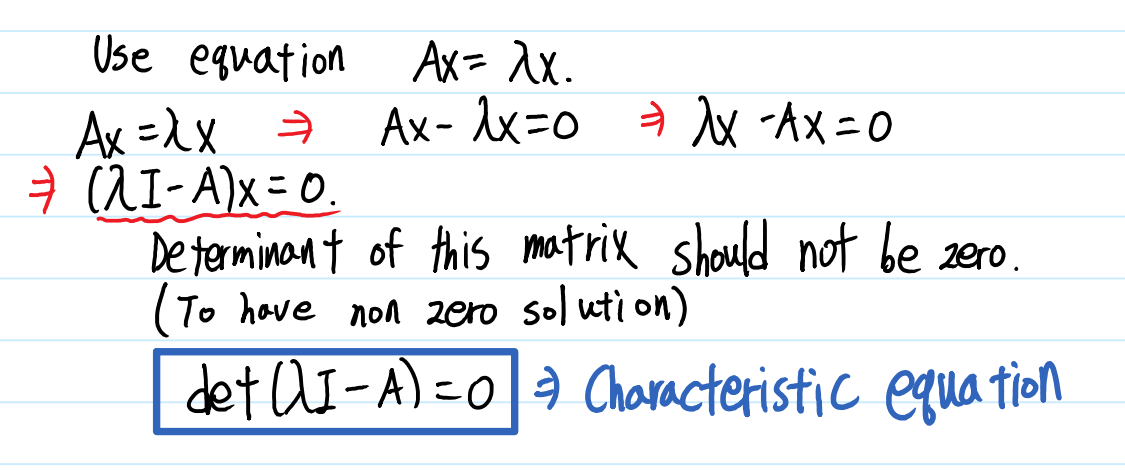 Use equation Ax = λx.
Ax = λx ⇒ Ax - λx = 0 ⇒ λx - Ax = 0
⇒ (λI - A)x = 0.
Determinant of this matrix should not be zero.
(To have non zero solution)
det(λI - A) = 0 ⇒ Characteristic equation